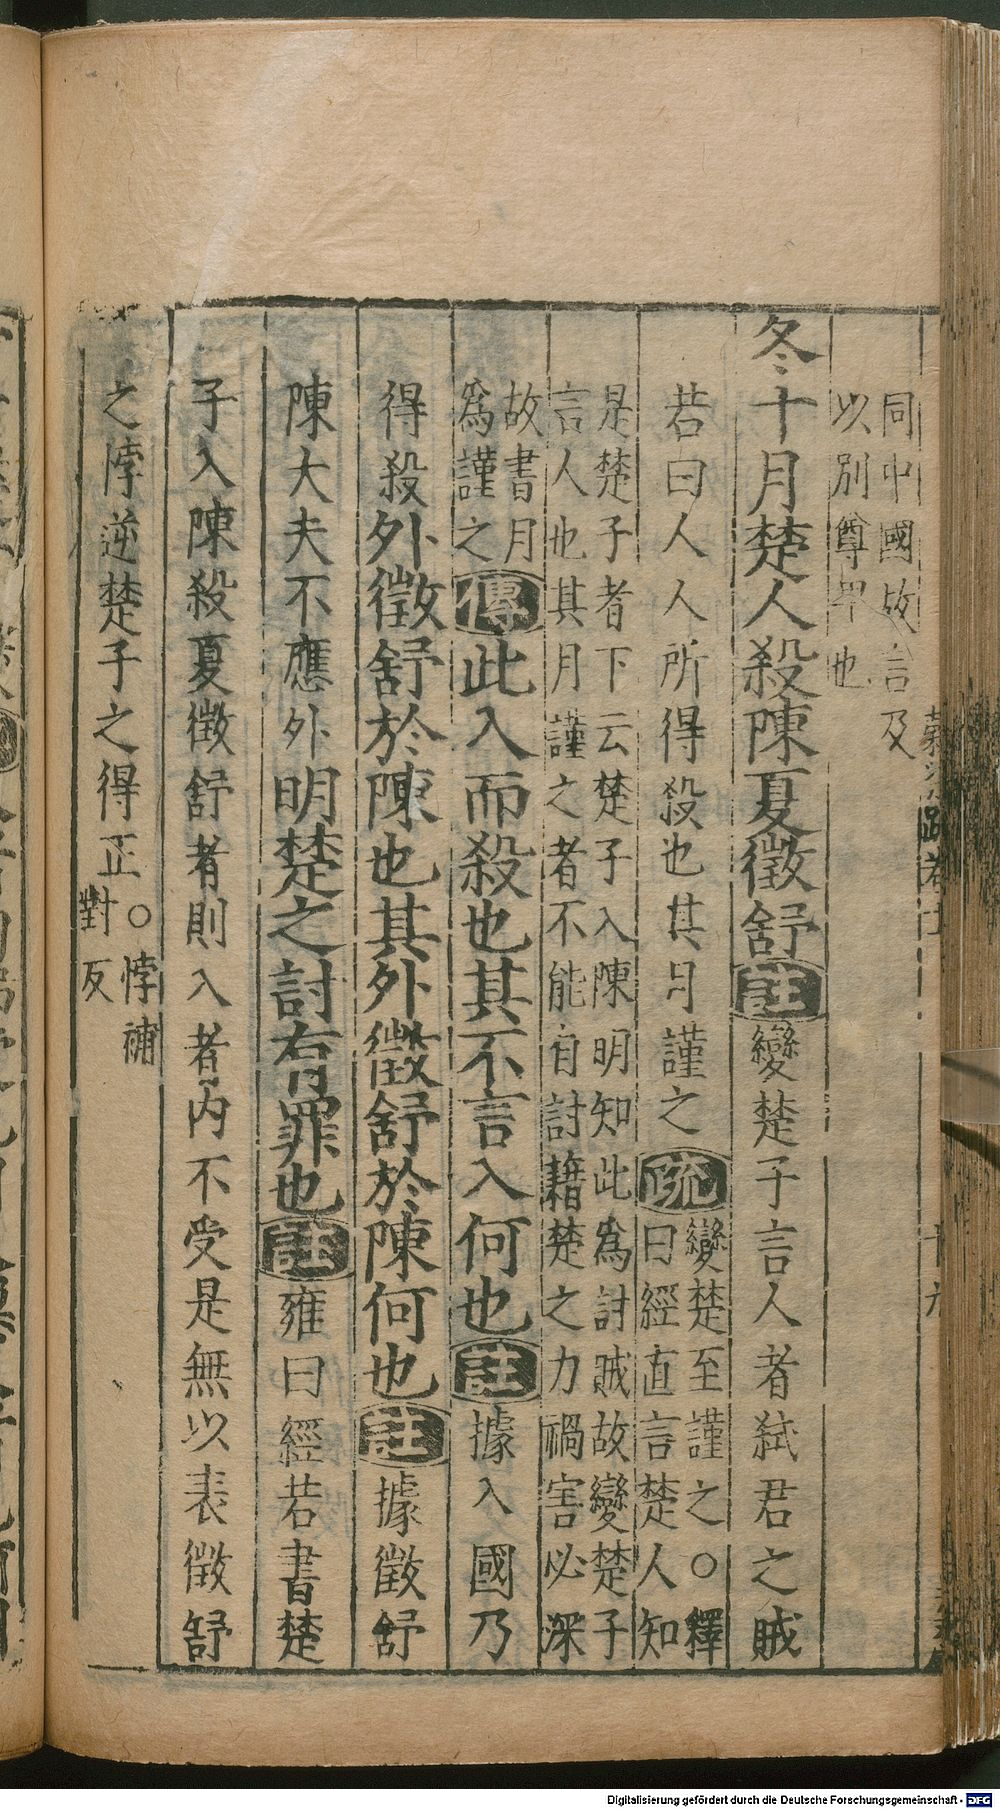 同中國故言及
以別尊卑也
冬十月楚人殺陳夏徵舒註變楚子言人者弒君之賊
若曰人人所得殺也其月謹之疏變楚至謹之○釋
曰經直言楚人知
是楚子者下云楚子入陳明知此為討賊故變楚子
言人也其月謹之者不能自討藉楚之力禍害必深
故書月
為謹之傳此入而殺也其不言入何也註據入國乃
得殺外徵舒於陳也其外徵舒於陳何也註據徵舒
陳大夫不應外明楚之討有罪也註雍曰經若書楚
子入陳殺夏徵舒者則入者內不受是無以表徵舒
之悖逆楚子之得正○悖補
對反
Digitalisierung gefördert durch die Deutsche Forschungsgemeinschaft - DFG